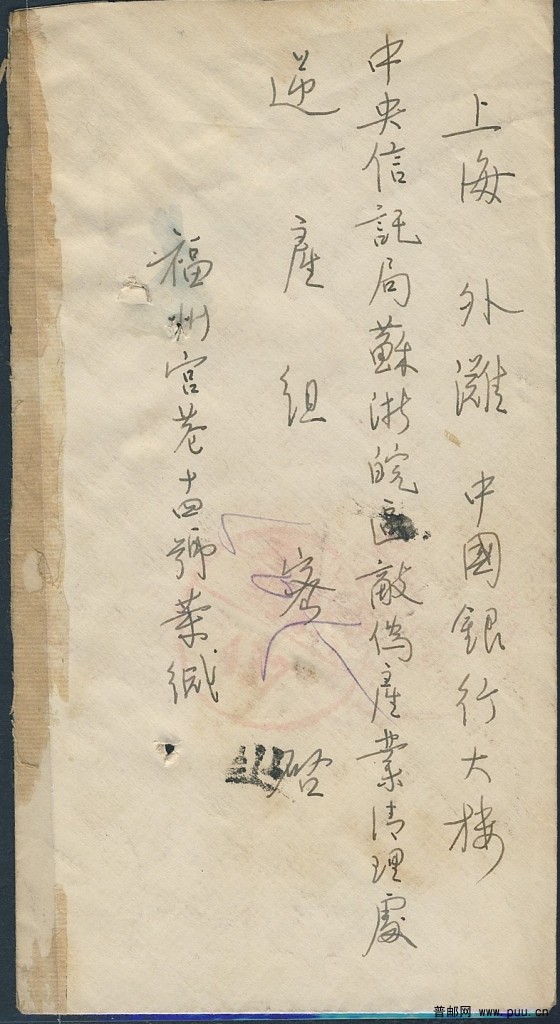 上海 外灘 中國銀行大楼
中央信託局蘇浙皖區敵偽產業清理處
逆產組 密啓
福州宫巷十四號葉緘
普邮网 www.puu.cn